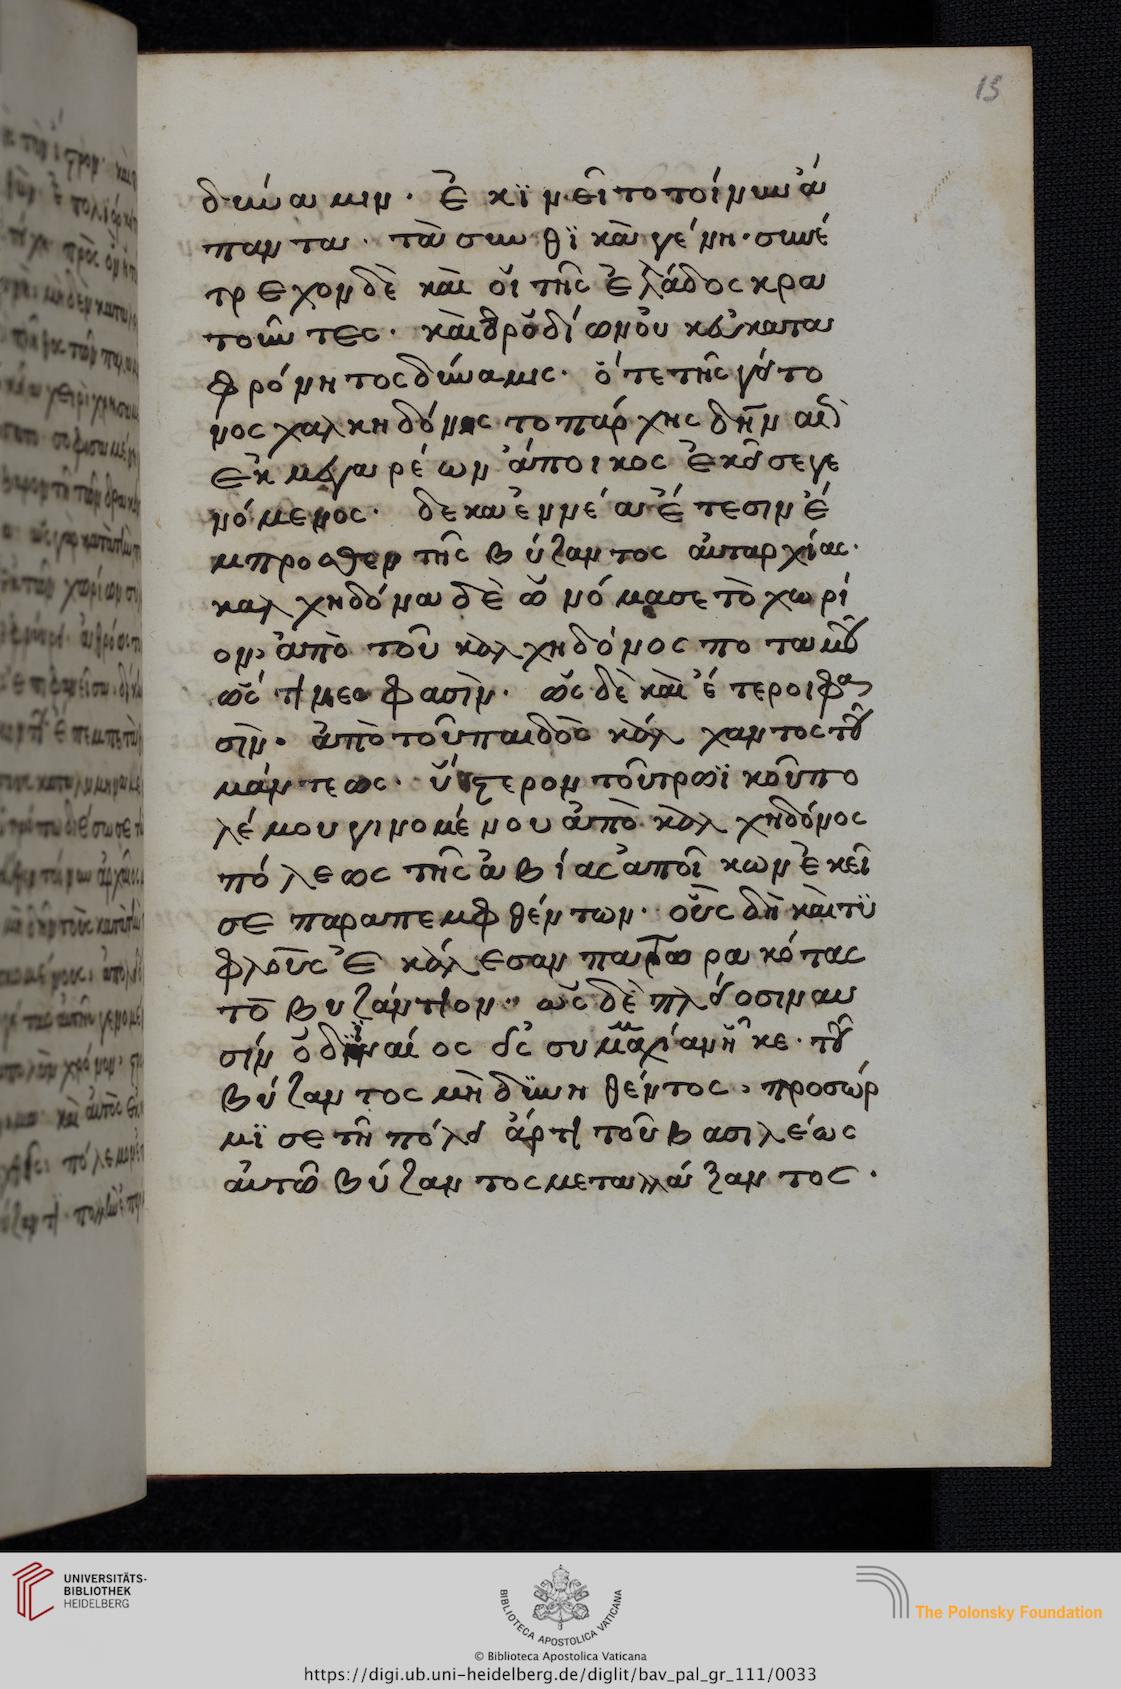 15
δύναμιν. ἐκϊνεῖτο τοίνυν ἅ
παντα. τὰ σκυθϊκὰ γένη. συνέ
τρεχον δὲ καὶ οἵ τῆς ἑλλάδος κρα
τοῦντες. καὶ ἦν ῥοδίων οὐκ εὐκατα
φρόνητος δύναμις. ὅτε τῆς γείτο
νος χαλκηδόνος τοπάρχης δῆν αεὶ
ἐκ μεγαρέων ἄποικος ἐκεῖσε γε
νόμενος. δεκαεννέα ἔτεσιν ἔ
μπροσθεν τῆς βύζαντος αὐταρχίας.
καλχηδόνα δὲ ὠνόμασε τὸ χωρί
ον, ἀπὸ τοῦ καλχηδόνος ποταμοῦ
ὥς τινες φασὶν. ὡς δὲ καὶ ἕτεροι φα
σὶν. ἀπὸ τοῦ παιδὸς κάλχαντος τοῦ
μάντεως. ὕστερον τοῦ τρωϊκοῦ πο
λέμου γινομένου ἀπὸ καλχηδόνος
πόλεως τῆς ἀβίας ἀποίκων ἐκεῖ
σε παραπεμφθέντων. οὓς δὴ καὶ τϋ
φλοὺς ἐκάλεσαν παρεωρακότας
τὸ βυζάντιον. ὡς δὲ πλείοσιν αυ
σίν ὁ δῖναίος εἰς συμμαχίαν ἧκε. τοῦ
βύζαντος μὴ δϋνηθέντος, προσώρ
μϊσε τῆ πόλει ἄρτι τοῦ βασιλέως
αὐτῶ βύζαντος μεταλλάξαντος.
UNIVERSITÄTS-
BIBLIOTHEK
HEIDELBERG
BIBLIOTECA APOSTOLICA VATICANA
The Polonsky Foundation
© Biblioteca Apostolica Vaticana
https://digi.ub.uni-heidelberg.de/diglit/bav_pal_gr_111/0033